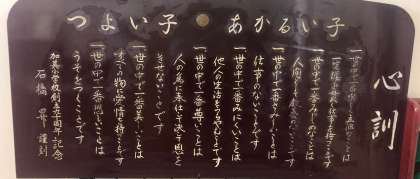 つよい子 あかるい子
心訓
一世の中で一番楽しく立派なことは
一生涯を貫く仕事を持つことです
一世の中で一番みじめなことは
人間として教養のないことです
一世の中で一番さびしいことは
仕事のないことです
一世の中で一番みにくいことは
他人の生活をうらやむことです
一世の中で一番尊いことは
人の為に奉仕して決して恩を
きせないことです
一世の中で一番美しいことは
すべての物に愛情を持つことです
一世の中で一番悲しいことは
うそをつくことです
小学校創立十周年記念
石橋 謹刻